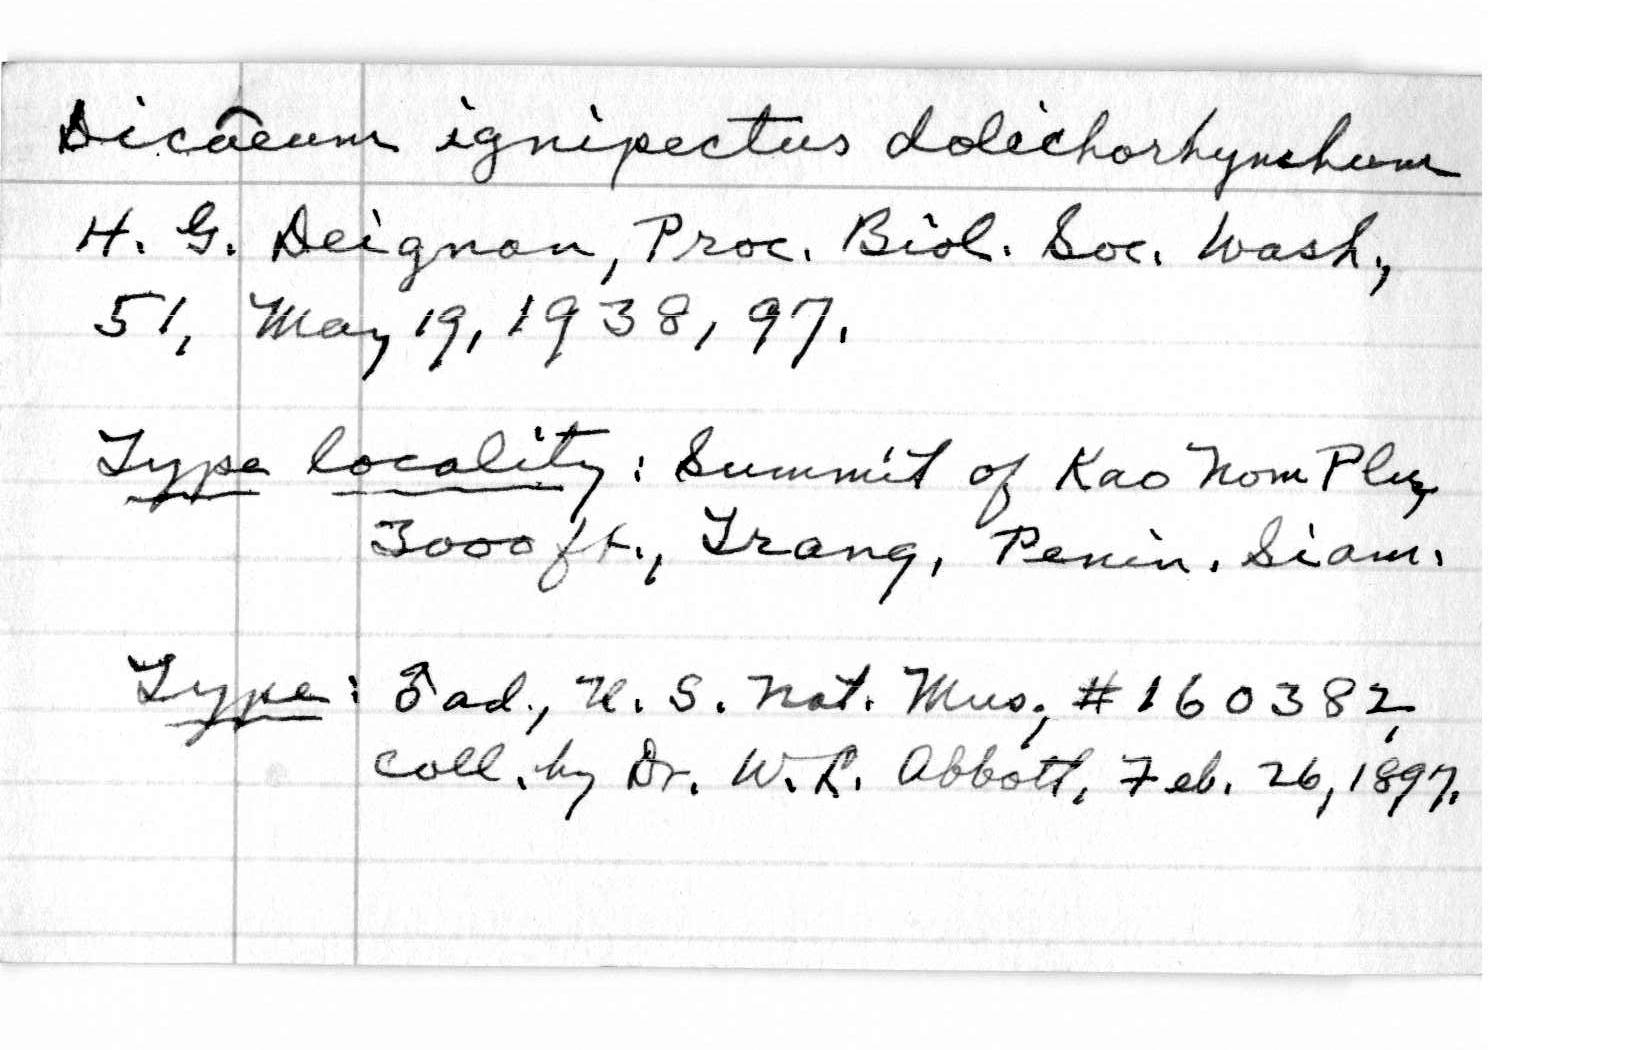 Dicaeum ignipectus dolichorhynchum
H. G. Deignan, Proc. Biol. Soc. Wash.,
51, May 19, 1938, 97.
Type locality: Summit of Kao Nom Plu,
3000 ft., Trang, Penin. Siam.
Type: ♂ ad., U. S. Nat. Mus., #160382,
coll. by Dr. W. L. Abbott, Feb. 26, 1897.